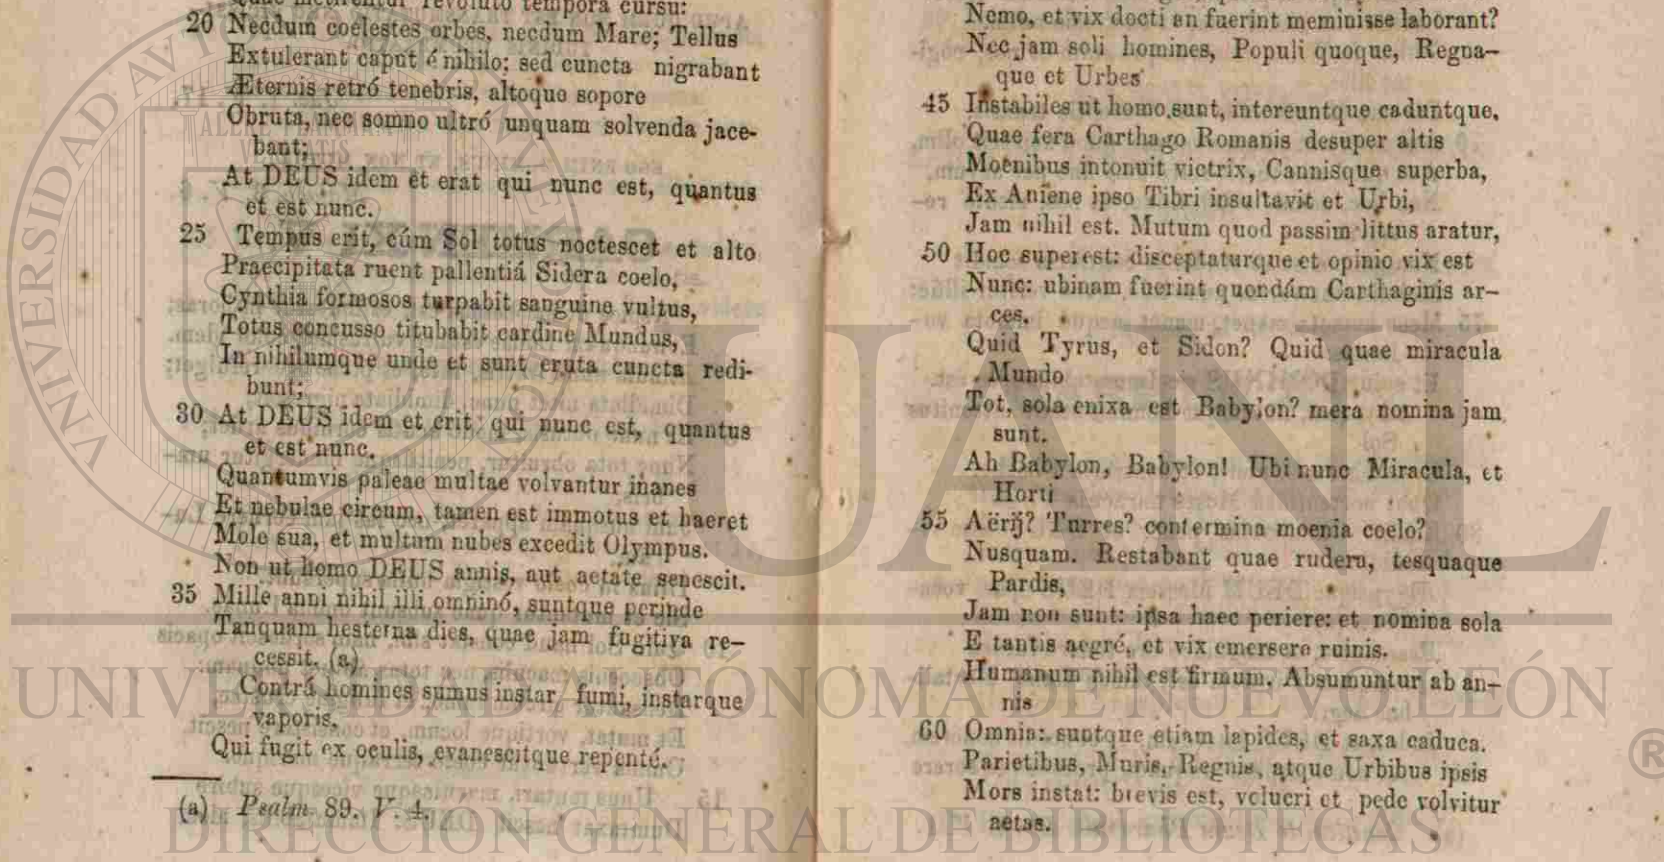 Quae metirentur revoluto tempora cursu:
20 Necdum coelestes orbes, necdum Mare; Tellus
Extulerant caput é nihilo; sed cuncta nigrabant
Æternis retró tenebris, altoque sopore
Obruta, nec somno ultró unquam solvenda jace-
bant;
At DEUS idem et erat qui nunc est, quantus
et est nunc.
25 Tempus erit, cúm Sol totus noctescet et alto
Praecipitata ruent pallentiá Sidera coelo,
Cynthia formosos turpabit sanguine vultus,
Totus concusso titubabit cardine Mundus,
In nihilumque unde et sunt eruta cuncta redi-
bunt;
30 At DEUS idem et erit qui nunc est, quantus
et est nunc.
Quantumvis paleae multae volvantur inanes
Et nebulae circum, tamen est immotus et haeret
Mole sua, et multum nubes excedit Olympus.
Non ut homo DEUS annis, aut aetate senescit.
35 Mille anni nihil illi omninó, suntque perinde
Tanquam hesterna dies, quae jam fugitiva re-
cessit. (a)
Contrá homines sumus instar fumi, instarque
vaporis,
Qui fugit ex oculis, evanescitque repenté.
(a) Psalm. 89. V. 4.
Nemo, et vix docti an fuerint meminisse laborant?
Nec jam soli homines, Populi quoque, Regna-
que et Urbes
45 Instabiles ut homo sunt, intereuntque caduntque,
Quae fera Carthago Romanis desuper altis
Moenibus intonuit victrix, Cannisque superba,
Ex Aniene ipso Tibri insultavit et Urbi,
Jam nihil est. Mutum quod passim littus aratur,
50 Hoc superest: disceptaturque et opinio vix est
Nunc: ubinam fuerint quondám Carthaginis ar-
ces.
Quid Tyrus, et Sidon? Quid quae miracula
Mundo
Tot, sola enixa est Babylon? mera nomina jam
sunt.
Ah Babylon, Babylon! Ubi nunc Miracula, et
Horti
55 Aërij? Turres? contermina moenia coelo?
Nusquam. Restabant quae rudera, tesquaque
Pardis,
Jam non sunt: ipsa haec periere: et nomina sola
E tantis aegré, et vix emersere ruinis.
Humanum nihil est firmum. Absumuntur ab an-
nis
60 Omnia: suntque etiam lapides, et saxa caduca.
Parietibus, Muris, Regnis, atque Urbibus ipsis
Mors instat: brevis est, volucri et pede volvitur
aetas.
UANL
UNIVERSIDAD AUTÓNOMA DE NUEVO LEÓN
®
DIRECCIÓN GENERAL DE BIBLIOTECAS